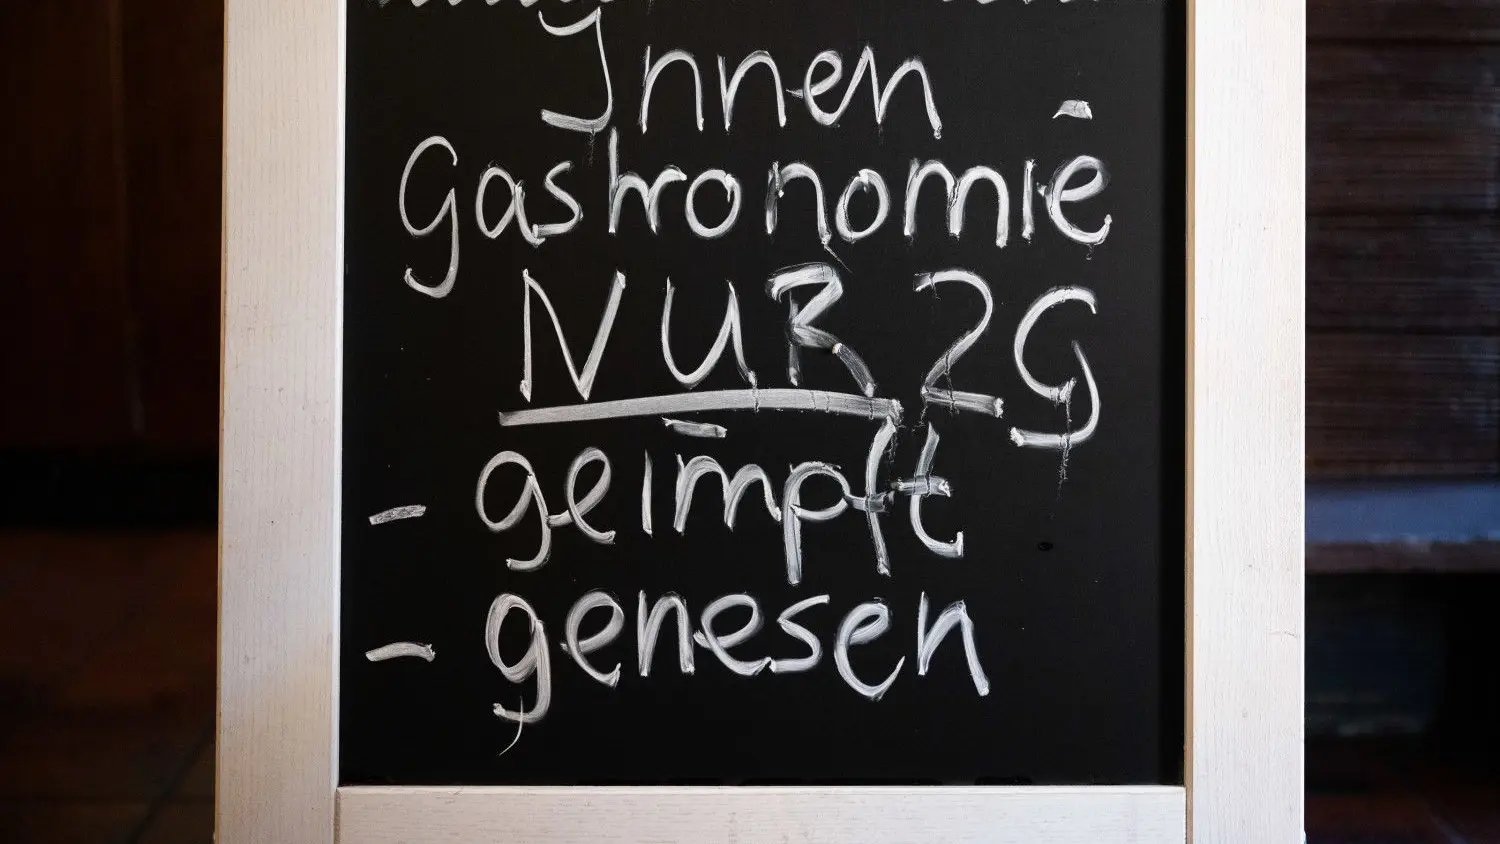 Innen
Gastronomie
NUR 2G
- geimpft
- genesen